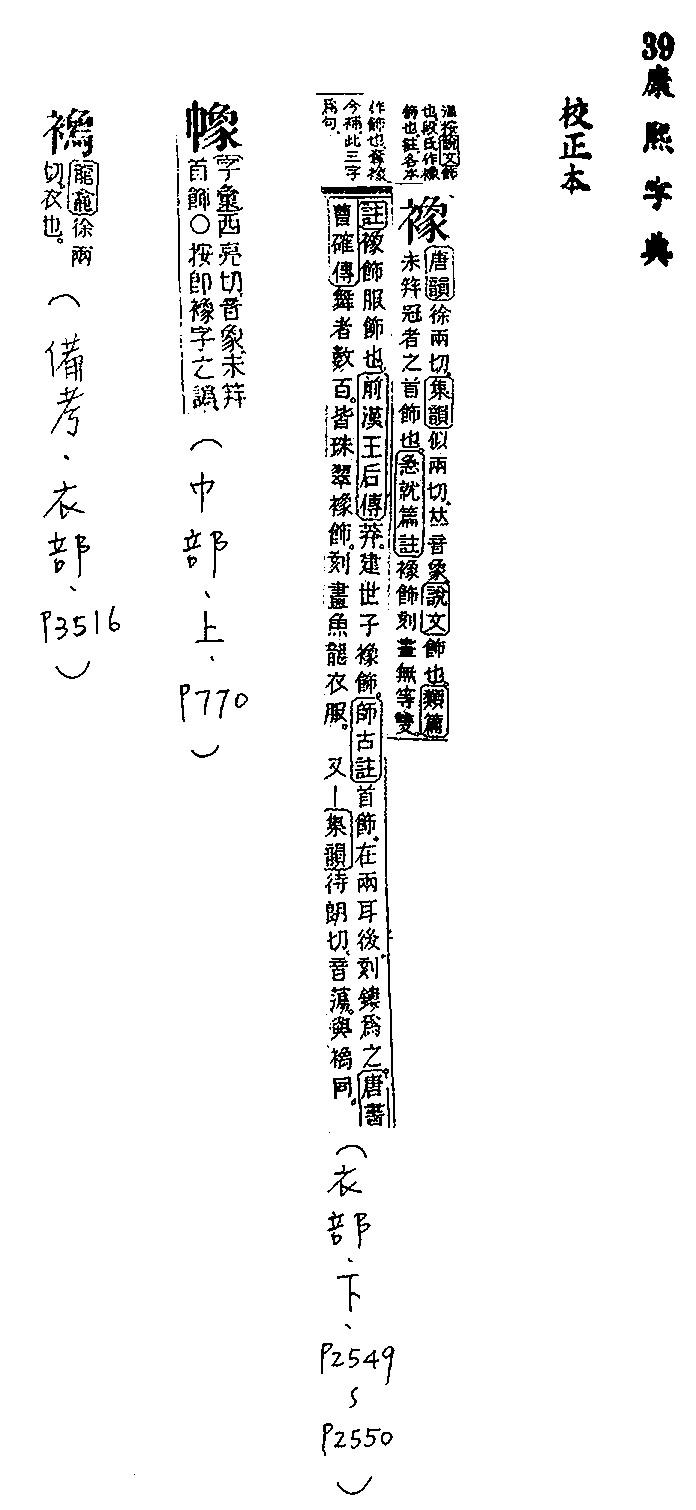 39康熙字典
校正本
按說文飾
也段氏作襐
飾也註各本
作飾也奪襐
今補此三字
爲句
襐
唐韻徐兩切。集韻似兩切。𠀤音象。說文飾也。類篇
未笄冠者之首飾也。急就篇註襐飾刻畫無等雙。
註襐飾服飾也。前漢王后傳莽。建世子襐飾。師古註首飾。在兩耳後。刻鏤爲之。唐書
曹確傳舞者數百。皆珠翠襐飾。刻畫魚龍衣服。 又|集韻待朗切。音蕩。與同。
(衣部、下、P2549~P2550)
字彙西亮切音象未笄
首飾○按卽襐字之譌
(巾部、上、P770)
龍龕徐兩
切。衣也。
(備考、衣部、P3516)